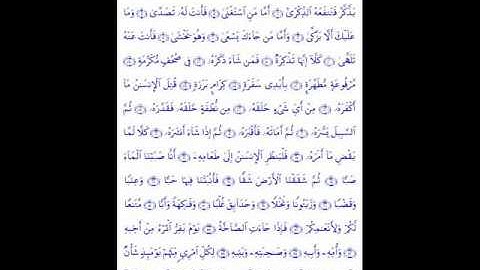 يَذَّكَّرُ فَتَنفَعَهُ ٱلذِّكْرَىٰٓ ۝ أَمَّا مَنِ ٱسْتَغْنَىٰ ۝ فَأَنتَ لَهُۥ تَصَدَّىٰ ۝ وَمَا
عَلَيْكَ أَلَّا يَزَّكَّىٰ ۝ وَأَمَّا مَن جَآءَكَ يَسْعَىٰ ۝ وَهُوَ يَخْشَىٰ ۝ فَأَنتَ عَنْهُ
تَلَهَّىٰ ۝ كَلَّآ إِنَّهَا تَذْكِرَةٌ ۝ فَمَن شَآءَ ذَكَرَهُۥ ۝ فِى صُحُفٍ مُّكَرَّمَةٍ ۝
مَّرْفُوعَةٍ مُّطَهَّرَةٍۭ ۝ بِأَيْدِى سَفَرَةٍ ۝ كِرَامٍۭ بَرَرَةٍ ۝ قُتِلَ ٱلْإِنسَٰنُ مَآ
أَكْفَرَهُۥ ۝ مِنْ أَىِّ شَىْءٍ خَلَقَهُۥ ۝ مِن نُّطْفَةٍ خَلَقَهُۥ فَقَدَّرَهُۥ ۝ ثُمَّ
ٱلسَّبِيلَ يَسَّرَهُۥ ۝ ثُمَّ أَمَاتَهُۥ فَأَقْبَرَهُۥ ۝ ثُمَّ إِذَا شَآءَ أَنشَرَهُۥ ۝ كَلَّا لَمَّا
يَقْضِ مَآ أَمَرَهُۥ ۝ فَلْيَنظُرِ ٱلْإِنسَٰنُ إِلَىٰ طَعَامِهِۦٓ ۝ أَنَّا صَبَبْنَا ٱلْمَآءَ
صَبًّا ۝ ثُمَّ شَقَقْنَا ٱلْأَرْضَ شَقًّا ۝ فَأَنۢبَتْنَا فِيهَا حَبًّا ۝ وَعِنَبًا
وَقَضْبًا ۝ وَزَيْتُونًا وَنَخْلًا ۝ وَحَدَآئِقَ غُلْبًا ۝ وَفَٰكِهَةً وَأَبًّا ۝ مَّتَٰعًا
لَّكُمْ وَلِأَنْعَٰمِكُمْ ۝ فَإِذَا جَآءَتِ ٱلصَّآخَّةُ ۝ يَوْمَ يَفِرُّ ٱلْمَرْءُ مِنْ أَخِيهِ
۝ وَأُمِّهِۦ وَأَبِيهِ ۝ وَصَٰحِبَتِهِۦ وَبَنِيهِ ۝ لِكُلِّ ٱمْرِئٍ مِّنْهُمْ يَوْمَئِذٍ شَأْنٌ